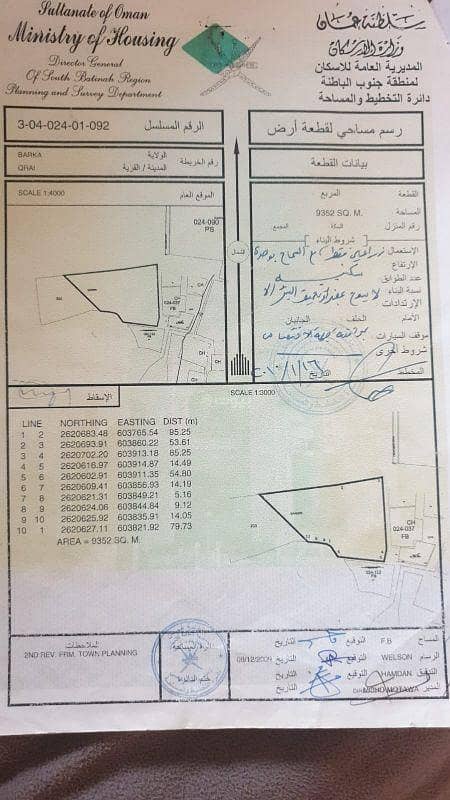 Sultanate of Oman
Ministry of Housing
Director General
Of South Batinah Region
Planning and Survey Department
سلطنة عمان
وزارة الإسكان
المديرية العامة للاسكان
لمنطقة جنوب الباطنة
دائرة التخطيط والمساحة
3-04-024-01-092 الرقم المسلسل
رسم مساحي لقطعة أرض
BARKA الولاية
QRAI المدينة / القرية
رقم الخريطة
بيانات القطعة
SCALE 1:4000 الموقع العام
024-090
PS
024-037
FB
CH
CH
CH
الشمال
القطعة المربع
المساحة 9352 SQ. M.
رقم المنزل السكة المجمع
شروط البناء
الاستعمال
الارتفاع
عدد الطوابق
نسبة البناء
الارتدادات
الامام الخلف الجانبيان
موقف السيارات
شروط أخرى
المخطط التاريخ
الإسقاط
SCALE 1:3000
LINE NORTHING EASTING DIST (m)
1 2 2620683.48 603765.54 95.25
2 3 2620693.91 603860.22 53.61
3 4 2620702.20 603913.18 85.25
4 5 2620616.97 603914.87 14.49
5 6 2620602.91 603911.35 54.80
6 7 2620609.41 603856.93 14.19
7 8 2620621.31 603849.21 5.16
8 9 2620624.06 603844.84 9.12
9 10 2620625.92 603835.91 14.05
10 1 2620627.11 603821.92 79.73
AREA = 9352 SQ. M.
CH
024-037
FB
024-112
الملاحظات
2ND REV. FRM. TOWN PLANNING
المساح F.B التوقيع التاريخ
الرسام WELSON التوقيع التاريخ 08/12/2009
التدقيق HAMDAN التوقيع التاريخ
المدير MOHD MQTAWA التوقيع التاريخ